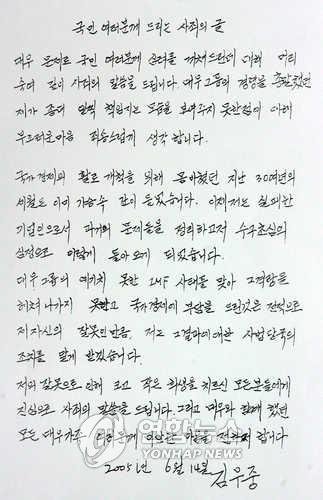 국민 여러분께 드리는 사죄의 글
대우 문제로 국민 여러분께 심려를 끼쳐드린데 대해 머리
숙여 깊이 사죄의 말씀을 드립니다. 대우그룹의 경영을 총괄했던
제가 좀더 일찍 책임지는 모습을 보여주지 못한점에 대해
부끄러운마음 죄송스럽게 생각 합니다.
국가경제의 활로 개척을 위해 몸아쳤던 지난 30여년의
세월도 이제 가슴속 깊이 묻었습니다. 이제저는 실패한
기업인으로서 과거의 문제들을 정리하고저 수구초심의
심정으로 이렇게 돌아오게 되었습니다.
대우그룹의 예기치 못한 IMF 사태를 맞아 그격랑을
헤쳐나가지 못하고 국가경제에 부담을 드린것은 전적으로
저 자신의 잘못인만큼, 저는 그결과에대한 사법당국의
조치를 달게 받겠습니다.
저의 잘못으로 인해 크고 작은 희생을 치르신 모든분들에게
진심으로 사죄의 말씀을 드립니다. 그리고 대우와 함께 했던
모든 대우가족 여러분께 미안한 마음 전하고자 합니다
2005년 6월 14일 김우중
연합뉴스
YONHAP NEWS